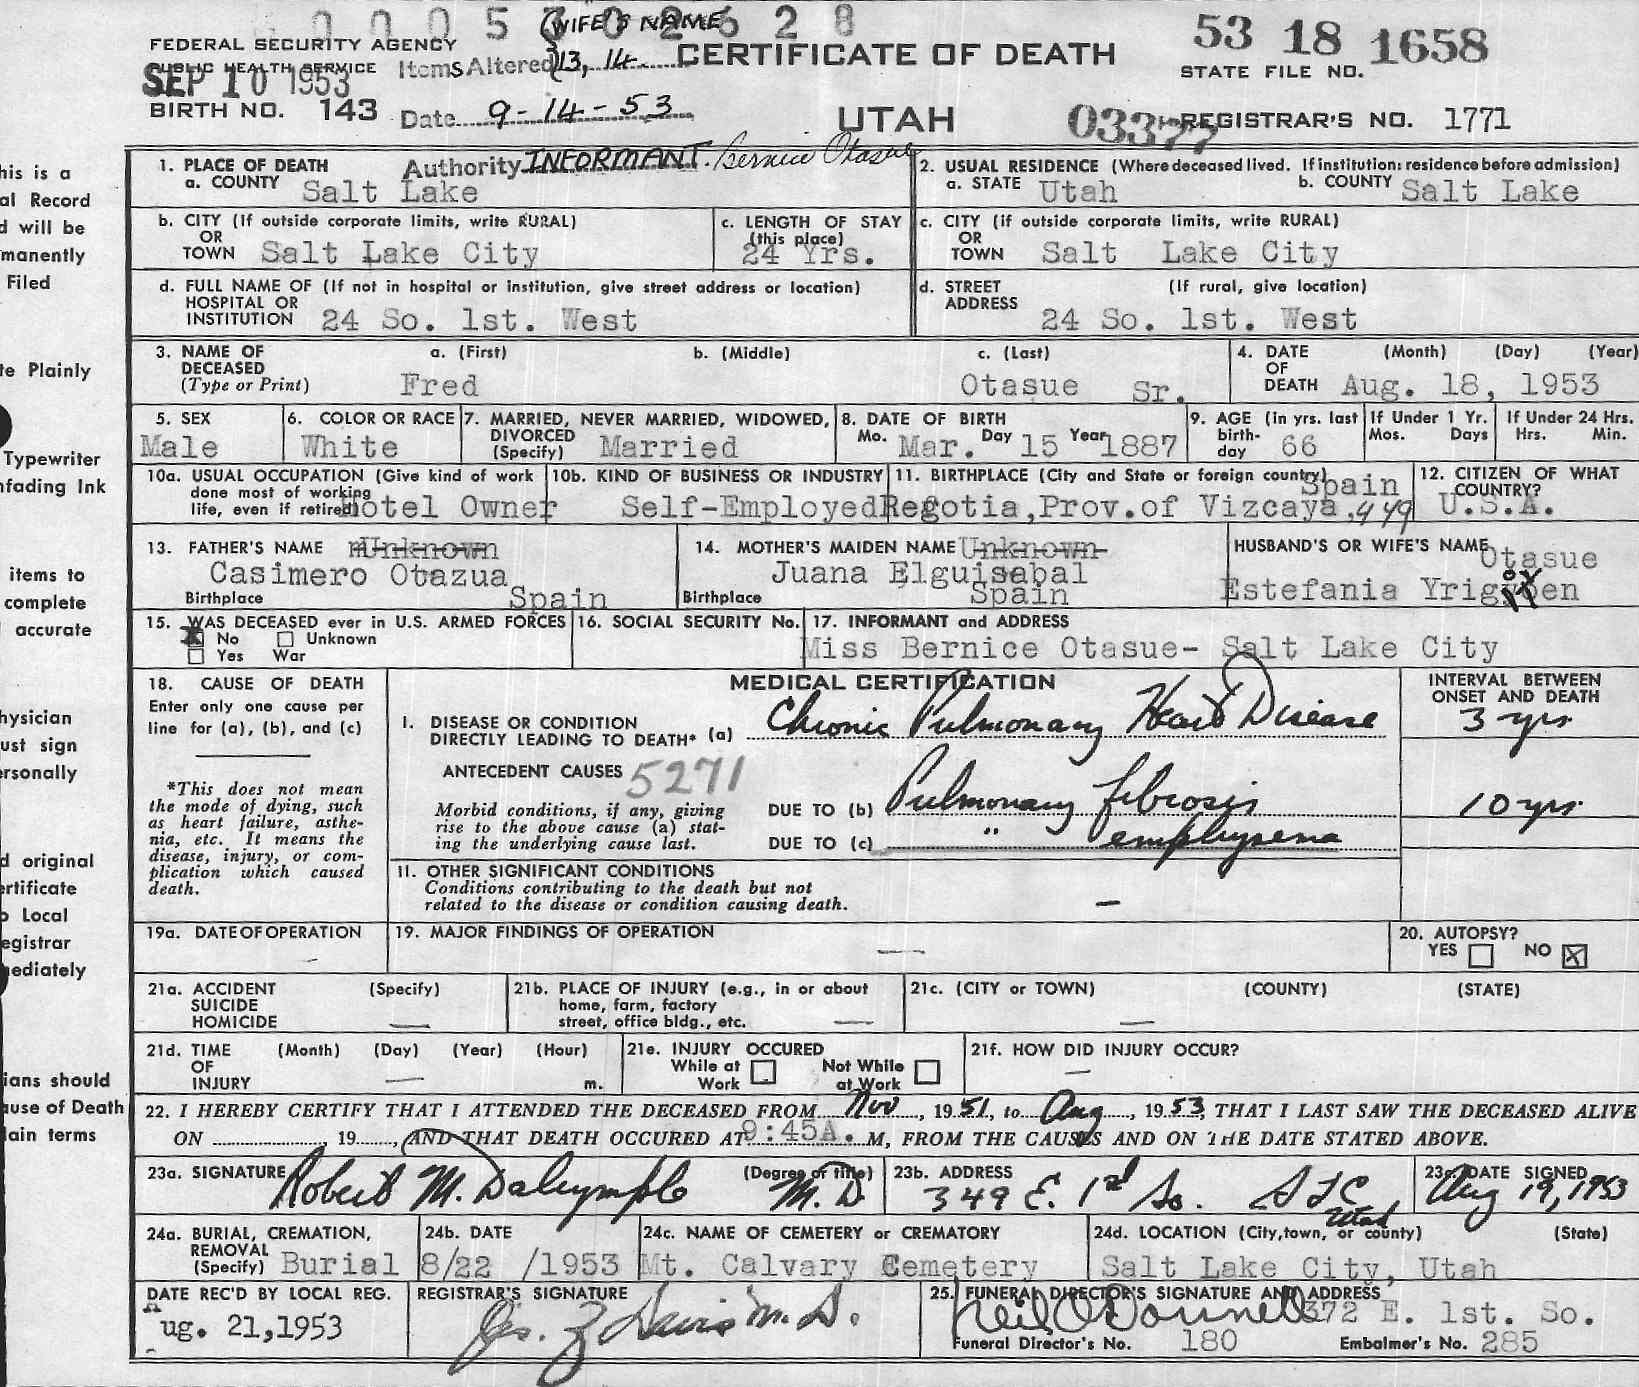 0 0 0 5 3 0 2 6 2 8
(WIFE'S NAME
FEDERAL SECURITY AGENCY
PUBLIC HEALTH SERVICE
SEP 10 1953
Items Altered 13, 14
CERTIFICATE OF DEATH
53 18 1658
STATE FILE NO.
BIRTH NO. 143
Date 9-14-53
UTAH
03377
REGISTRAR'S NO. 1771
Authority INFORMANT. Bernice Otasue
1. PLACE OF DEATH
a. COUNTY Salt Lake
2. USUAL RESIDENCE (Where deceased lived. If institution: residence before admission)
a. STATE Utah b. COUNTY Salt Lake
b. CITY (If outside corporate limits, write RURAL)
OR
TOWN Salt Lake City
c. LENGTH OF STAY
(this place)
24 Yrs.
c. CITY (if outside corporate limits, write RURAL)
OR
TOWN Salt Lake City
d. FULL NAME OF (If not in hospital or institution, give street address or location)
HOSPITAL OR
INSTITUTION 24 So. 1st. West
d. STREET (If rural, give location)
ADDRESS
24 So. 1st. West
3. NAME OF DECEASED
(Type or Print)
a. (First) b. (Middle) c. (Last)
Fred Otasue Sr.
4. DATE OF DEATH (Month) (Day) (Year)
Aug. 18, 1953
5. SEX
Male
6. COLOR OR RACE
White
7. MARRIED, NEVER MARRIED, WIDOWED,
DIVORCED
(Specify) Married
8. DATE OF BIRTH
Mo. Mar. Day 15 Year 1887
9. AGE (in yrs. last
birth-
day 66
If Under 1 Yr.
Mos. Days
If Under 24 Hrs.
Hrs. Min.
10a. USUAL OCCUPATION (Give kind of work
done most of working
life, even if retired) Hotel Owner
10b. KIND OF BUSINESS OR INDUSTRY
Self-Employed
11. BIRTHPLACE (City and State or foreign country)
Spain
Regotia, Prov. of Vizcaya, 449
12. CITIZEN OF WHAT
COUNTRY?
U.S.A.
13. FATHER'S NAME Unknown
Casimero Otazua
Birthplace Spain
14. MOTHER'S MAIDEN NAME Unknown
Juana Elguisabal
Birthplace Spain
HUSBAND'S OR WIFE'S NAME
Otasue
Estefania
15. WAS DECEASED ever in U.S. ARMED FORCES
No Unknown
Yes War
16. SOCIAL SECURITY No.
17. INFORMANT and ADDRESS
Miss Bernice Otasue- Salt Lake City
18. CAUSE OF DEATH
Enter only one cause per
line for (a), (b), and (c)
*This does not mean
the mode of dying, such
as heart failure, asthe-
nia, etc. It means the
disease, injury, or com-
plication which caused
death.
MEDICAL CERTIFICATION
INTERVAL BETWEEN
ONSET AND DEATH
I. DISEASE OR CONDITION
DIRECTLY LEADING TO DEATH* (a) Chronic Pulmonary Heart Disease
3 yrs
ANTECEDENT CAUSES 5271
Morbid conditions, if any, giving
rise to the above cause (a) stat-
ing the underlying cause last.
DUE TO (b) Pulmonary fibrosis
10 yrs
DUE TO (c) " emphysema
II. OTHER SIGNIFICANT CONDITIONS
Conditions contributing to the death but not
related to the disease or condition causing death. —
19a. DATE OF OPERATION
19. MAJOR FINDINGS OF OPERATION
20. AUTOPSY?
YES NO
21a. ACCIDENT (Specify)
SUICIDE
HOMICIDE
21b. PLACE OF INJURY (e.g., in or about
home, farm, factory
street, office bldg., etc.
21c. (CITY or TOWN) (COUNTY) (STATE)
21d. TIME (Month) (Day) (Year) (Hour)
OF
INJURY m.
21e. INJURY OCCURED
While at Work Not While at Work
21f. HOW DID INJURY OCCUR?
22. I HEREBY CERTIFY THAT I ATTENDED THE DECEASED FROM Nov, 1951, to Aug, 1953, THAT I LAST SAW THE DECEASED ALIVE
ON , 19 , AND THAT DEATH OCCURED AT 9:45A. M, FROM THE CAUSES AND ON THE DATE STATED ABOVE.
23a. SIGNATURE (Degree or title)
Robert M. Dalrymple M.D
23b. ADDRESS
349 E. 1st So. SLC Utah
23c. DATE SIGNED
Aug 19, 1953
24a. BURIAL, CREMATION,
REMOVAL
(Specify) Burial
24b. DATE
8/22 /1953
24c. NAME OF CEMETERY or CREMATORY
Mt. Calvary Cemetery
24d. LOCATION (City, town, or county) (State)
Salt Lake City, Utah
DATE REC'D BY LOCAL REG.
Aug. 21,1953
REGISTRAR'S SIGNATURE
Davis M.D.
25. FUNERAL DIRECTOR'S SIGNATURE AND ADDRESS
Neil O'Donnell 372 E. 1st. So.
Funeral Director's No. 180 Embalmer's No. 285
his is a
al Record
d will be
manently
Filed
te Plainly
Typewriter
nfading Ink
items to
complete
accurate
hysician
ust sign
ersonally
d original
ertificate
o Local
egistrar
mediately
ians should
ause of Death
lain terms